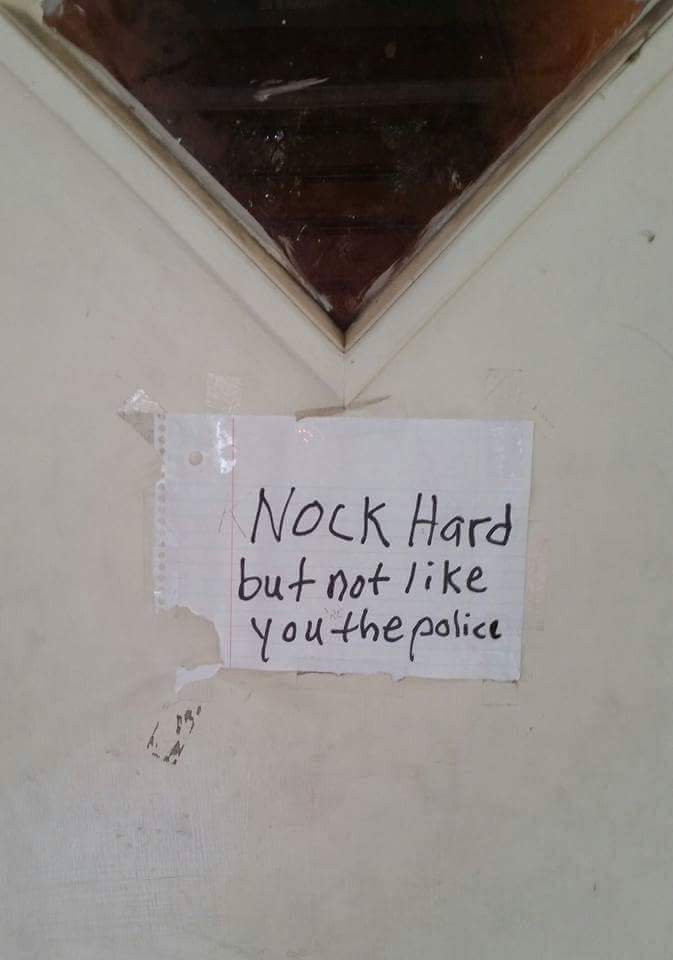 NOCK Hard
but not like
you the police